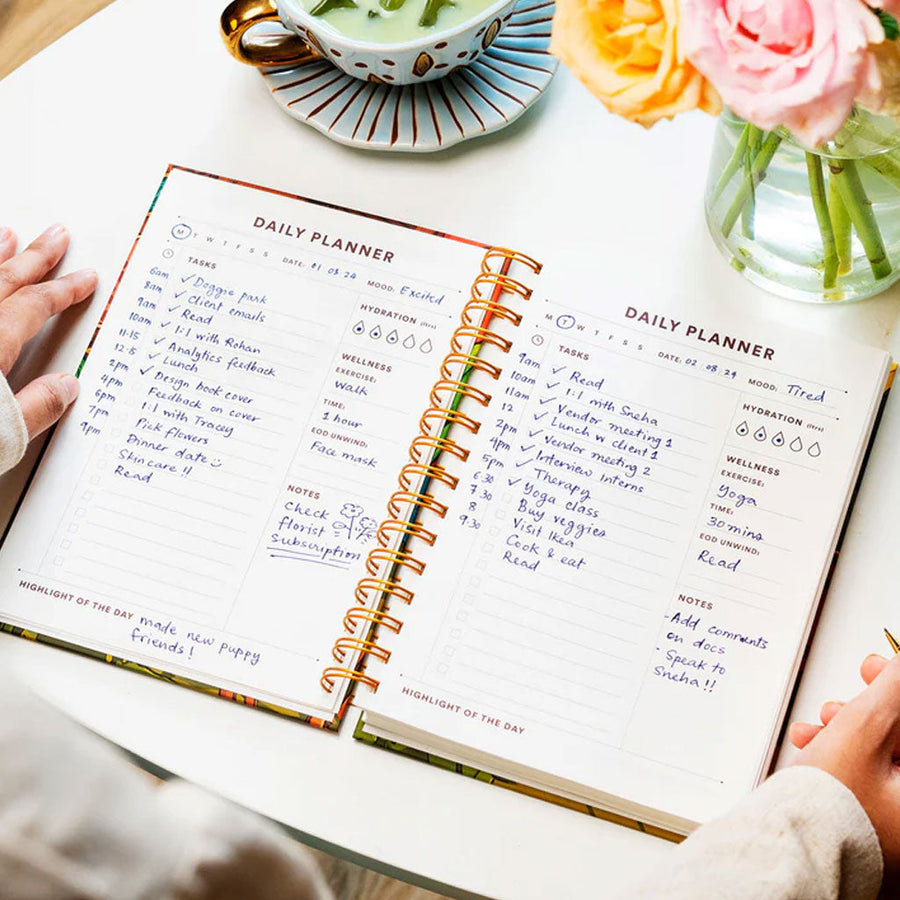 DAILY PLANNER
M T W T F S S DATE: 01 08 24 MOOD: Excited
TASKS
6am ✓ Doggie park
8am ✓ Client emails
9am ✓ Read
10am ✓ 1:1 with Rohan
11.15 ✓ Analytics feedback
12.15 ✓ Lunch
2pm ✓ Design book cover
4pm Feedback on cover
6pm 1:1 with Tracey
7pm Pick flowers
9pm Dinner date
Skincare !!
Read
HYDRATION (ltrs)
WELLNESS
EXERCISE:
Walk
TIME:
1 hour
EOD UNWIND:
Face mask
NOTES
Check
florist
subscription
HIGHLIGHT OF THE DAY made new puppy
friends!
DAILY PLANNER
M T W T F S S DATE: 02 08 24 MOOD: Tired
TASKS
9am ✓ Read
10am ✓ 1:1 with Sneha
11am ✓ Vendor meeting 1
12 ✓ Lunch w client 1
2pm ✓ Vendor meeting 2
4pm ✓ Interview interns
5pm ✓ Therapy
6.30 ✓ Yoga class
7.30 Buy veggies
8 Visit Ikea
9.30 Cook & eat
Read
HYDRATION (ltrs)
WELLNESS
EXERCISE:
Yoga
TIME:
30 mins
EOD UNWIND:
Read
NOTES
- Add comments
on docs
- Speak to
Sneha !!
HIGHLIGHT OF THE DAY